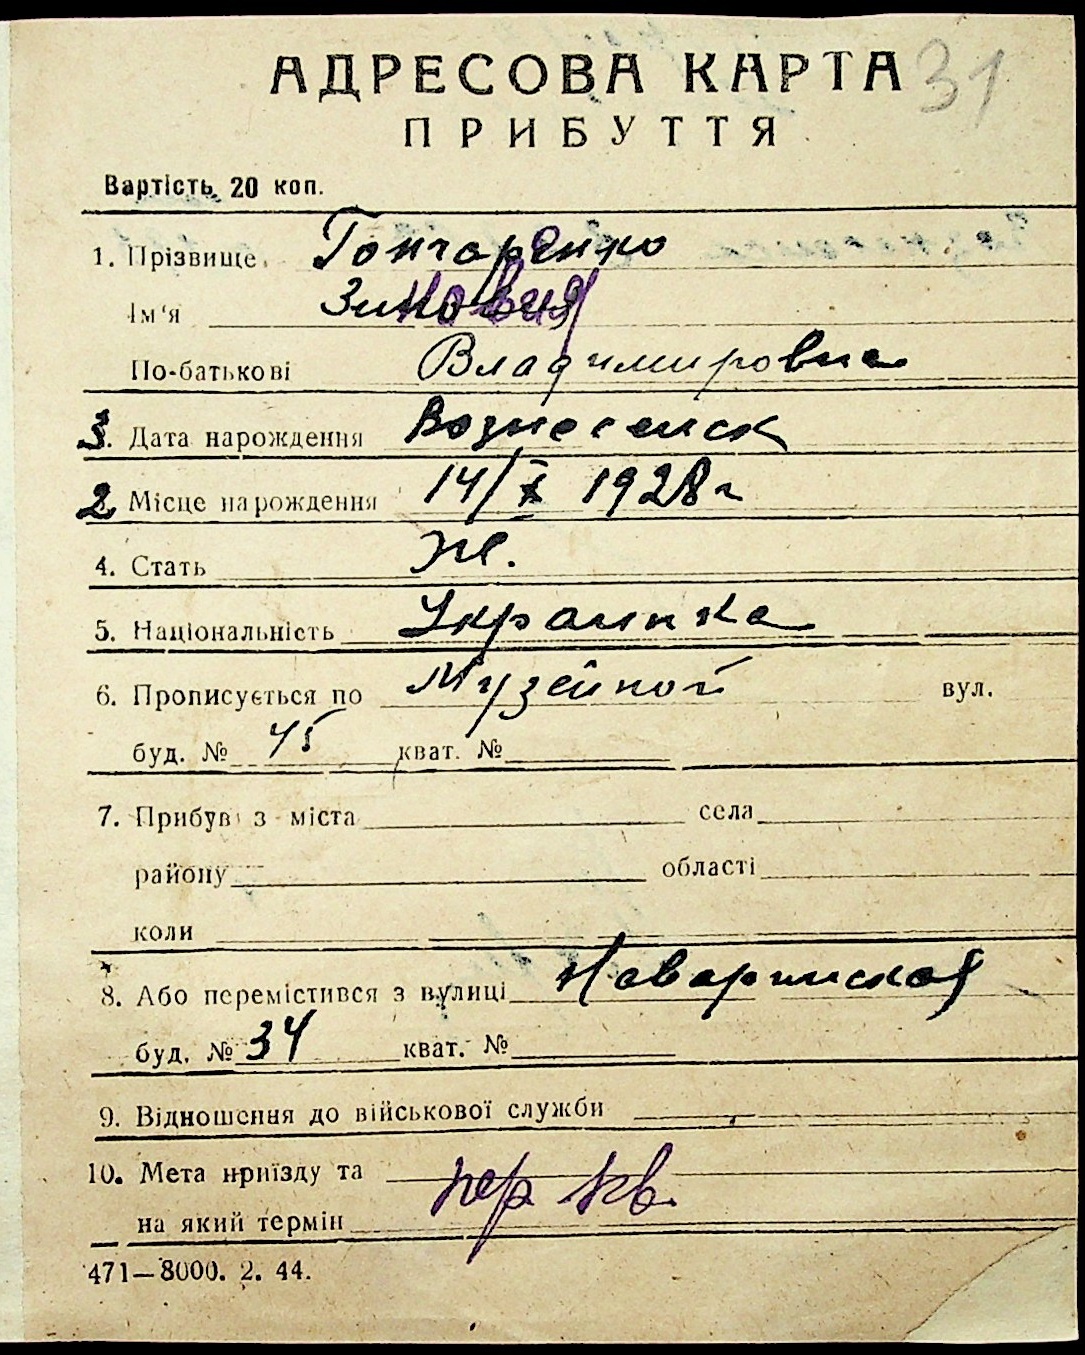 АДРЕСОВА КАРТА 31
ПРИБУТТЯ
Вартість 20 коп.
1. Прізвище Гончаренко
Ім'я Зиновия
По-батькові Владимировна
3. Дата нарождення Вознесенск
2. Місце нарождення 14/X 1928 г
4. Стать Ж.
5. Національність Украинка
6. Прописується по Музейной вул.
буд. № 45 кват. №
7. Прибув з міста села
району області
коли
8. Або перемістився з вулиці Наваринская
буд. № 34 кват. №
9. Відношення до військової служби
10. Мета приїзду та пер кв.
на який термін
471—8000. 2. 44.